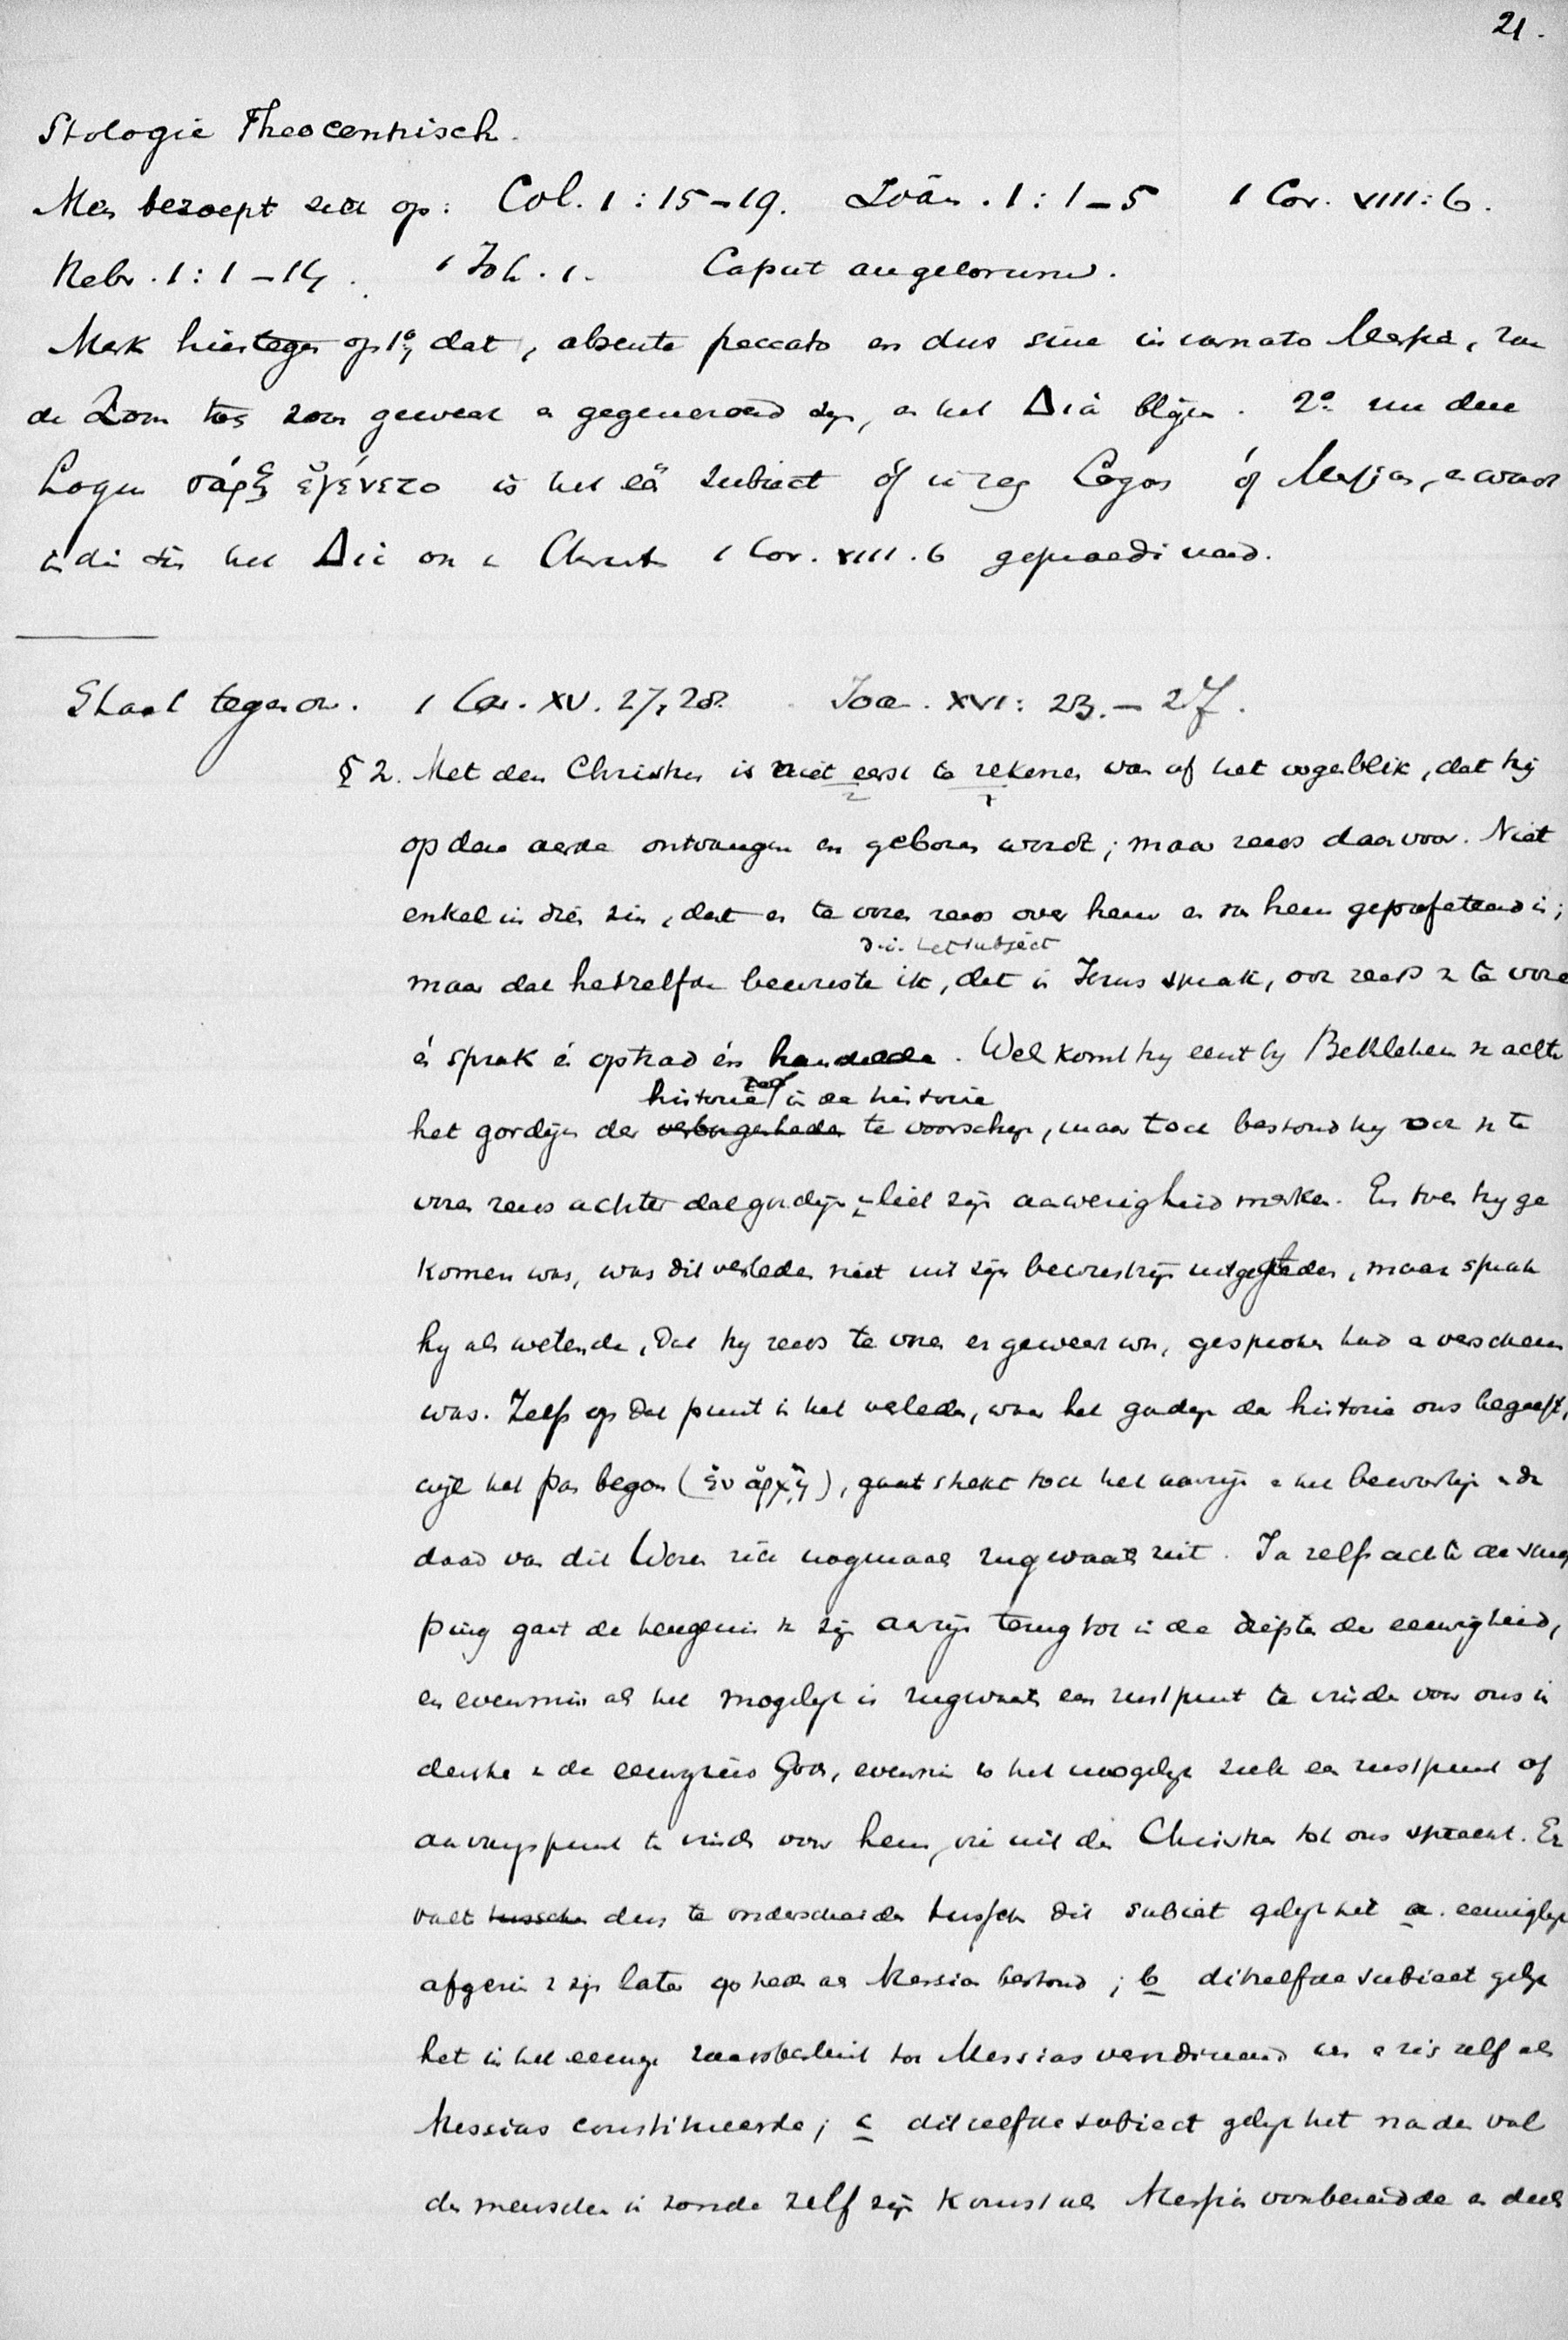 21.
Theocentrisch.
Men beroept zich op: Col. 1:15-19. Joän. 1:1-5 1 Cor. VIII:6.
Hebr. 1:1-14. 1 Joh. 1. Caput angelorum.
Merk hiertegen op 1º, dat, absente peccato en dus sine incarnato Messia, zou
de Zoon toch zoon geweest en gegenereerd zijn, en het Διὰ blijven. 2º nu den
Logos σάρξ ἐγένετο is het één subiect óf ik zeg Logos óf Messias, en wordt
in dien zin het Διὰ ook v Christus 1 Cor. VIII.6 gepraediceerd.
Staat tegenov. 1 Cor. XV. 27, 28. Joa. XVI: 23.-27.
§ 2. Met den Christus is niet eerst te rekenen van af het oogenblik, dat hij
op deze aarde ontvangen en geboren wordt; maar reeds daarvoor. Niet
enkel in dien zin, dat er te voren reeds over hem en van hem geprofeteerd is;
d.i. het subject
maar dat hetzelfde bewuste ik, dat in Jezus sprak, ook reeds v te vore
én sprak én optrad én handelde. Wel komt hij eerst bij Bethlehem v achter
historie in de historie
het gordijn der verborgenheden te voorschijn, maar toch bestond hij ook v te
voren reeds achter dat gordijn en liet zijn aanwezigheid merken. En toen hij ge
komen was, was dit verleden niet uit zijn bewustzijn uitgegleden, maar sprak
hij als wetende, dat hij reeds te voren er geweest was, gesproken had en verschenen
was. Zelfs op dat punt in het verleden, waar het gordijn der historie ons begeeft,
wijl het pas begon (ἐν ἀρχῇ), gaat strekt toch het aanzijn en het bewustzijn en de
daad van dit Wezen zich nogmaals rugwaarts uit. Ja zelfs achter de schep
ping gaat de heugenis v zijn aanzijn terug tot in de diepte der eeuwigheid,
en evenmin als het mogelijk is rugwaarts een rustpunt te vinden voor ons in
denken v de eeuwigheid Gods, evenmin is het mogelijk zulk een rustpunt of
aanvangspunt te vinden voor hem, die uit den Christus tot ons spreekt. Er
valt tusschen dus te onderscheiden tusschen dit subiect gelijk het a. eeuwiglijk
afgezien v zijn later optreden als Messias bestond; b ditzelfde subiect gelijk
het in het eeuwige raadsbesluit tot Messias verordineerd was en zich zelf als
Messias constitueerde; c ditzelfde subiect gelijk het na den val
der menschen in zonde zelf zijn komst als Messias voorbereidde en deels